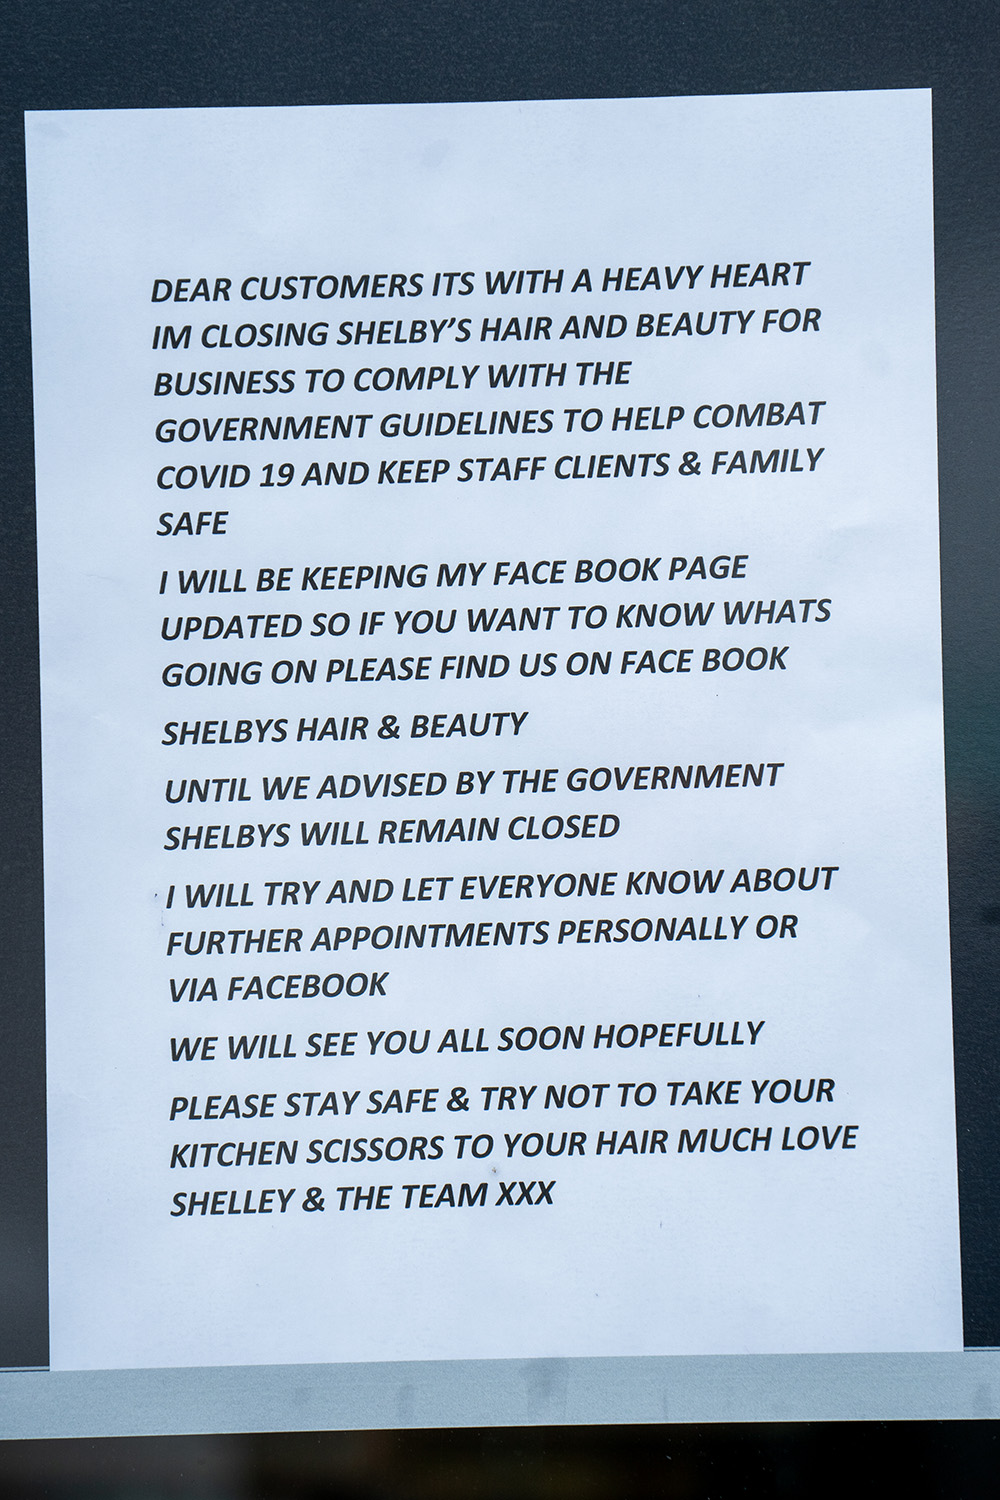 DEAR CUSTOMERS ITS WITH A HEAVY HEART
IM CLOSING SHELBY’S HAIR AND BEAUTY FOR
BUSINESS TO COMPLY WITH THE
GOVERNMENT GUIDELINES TO HELP COMBAT
COVID 19 AND KEEP STAFF CLIENTS & FAMILY
SAFE
I WILL BE KEEPING MY FACE BOOK PAGE
UPDATED SO IF YOU WANT TO KNOW WHATS
GOING ON PLEASE FIND US ON FACE BOOK
SHELBYS HAIR & BEAUTY
UNTIL WE ADVISED BY THE GOVERNMENT
SHELBYS WILL REMAIN CLOSED
I WILL TRY AND LET EVERYONE KNOW ABOUT
FURTHER APPOINTMENTS PERSONALLY OR
VIA FACEBOOK
WE WILL SEE YOU ALL SOON HOPEFULLY
PLEASE STAY SAFE & TRY NOT TO TAKE YOUR
KITCHEN SCISSORS TO YOUR HAIR MUCH LOVE
SHELLEY & THE TEAM XXX